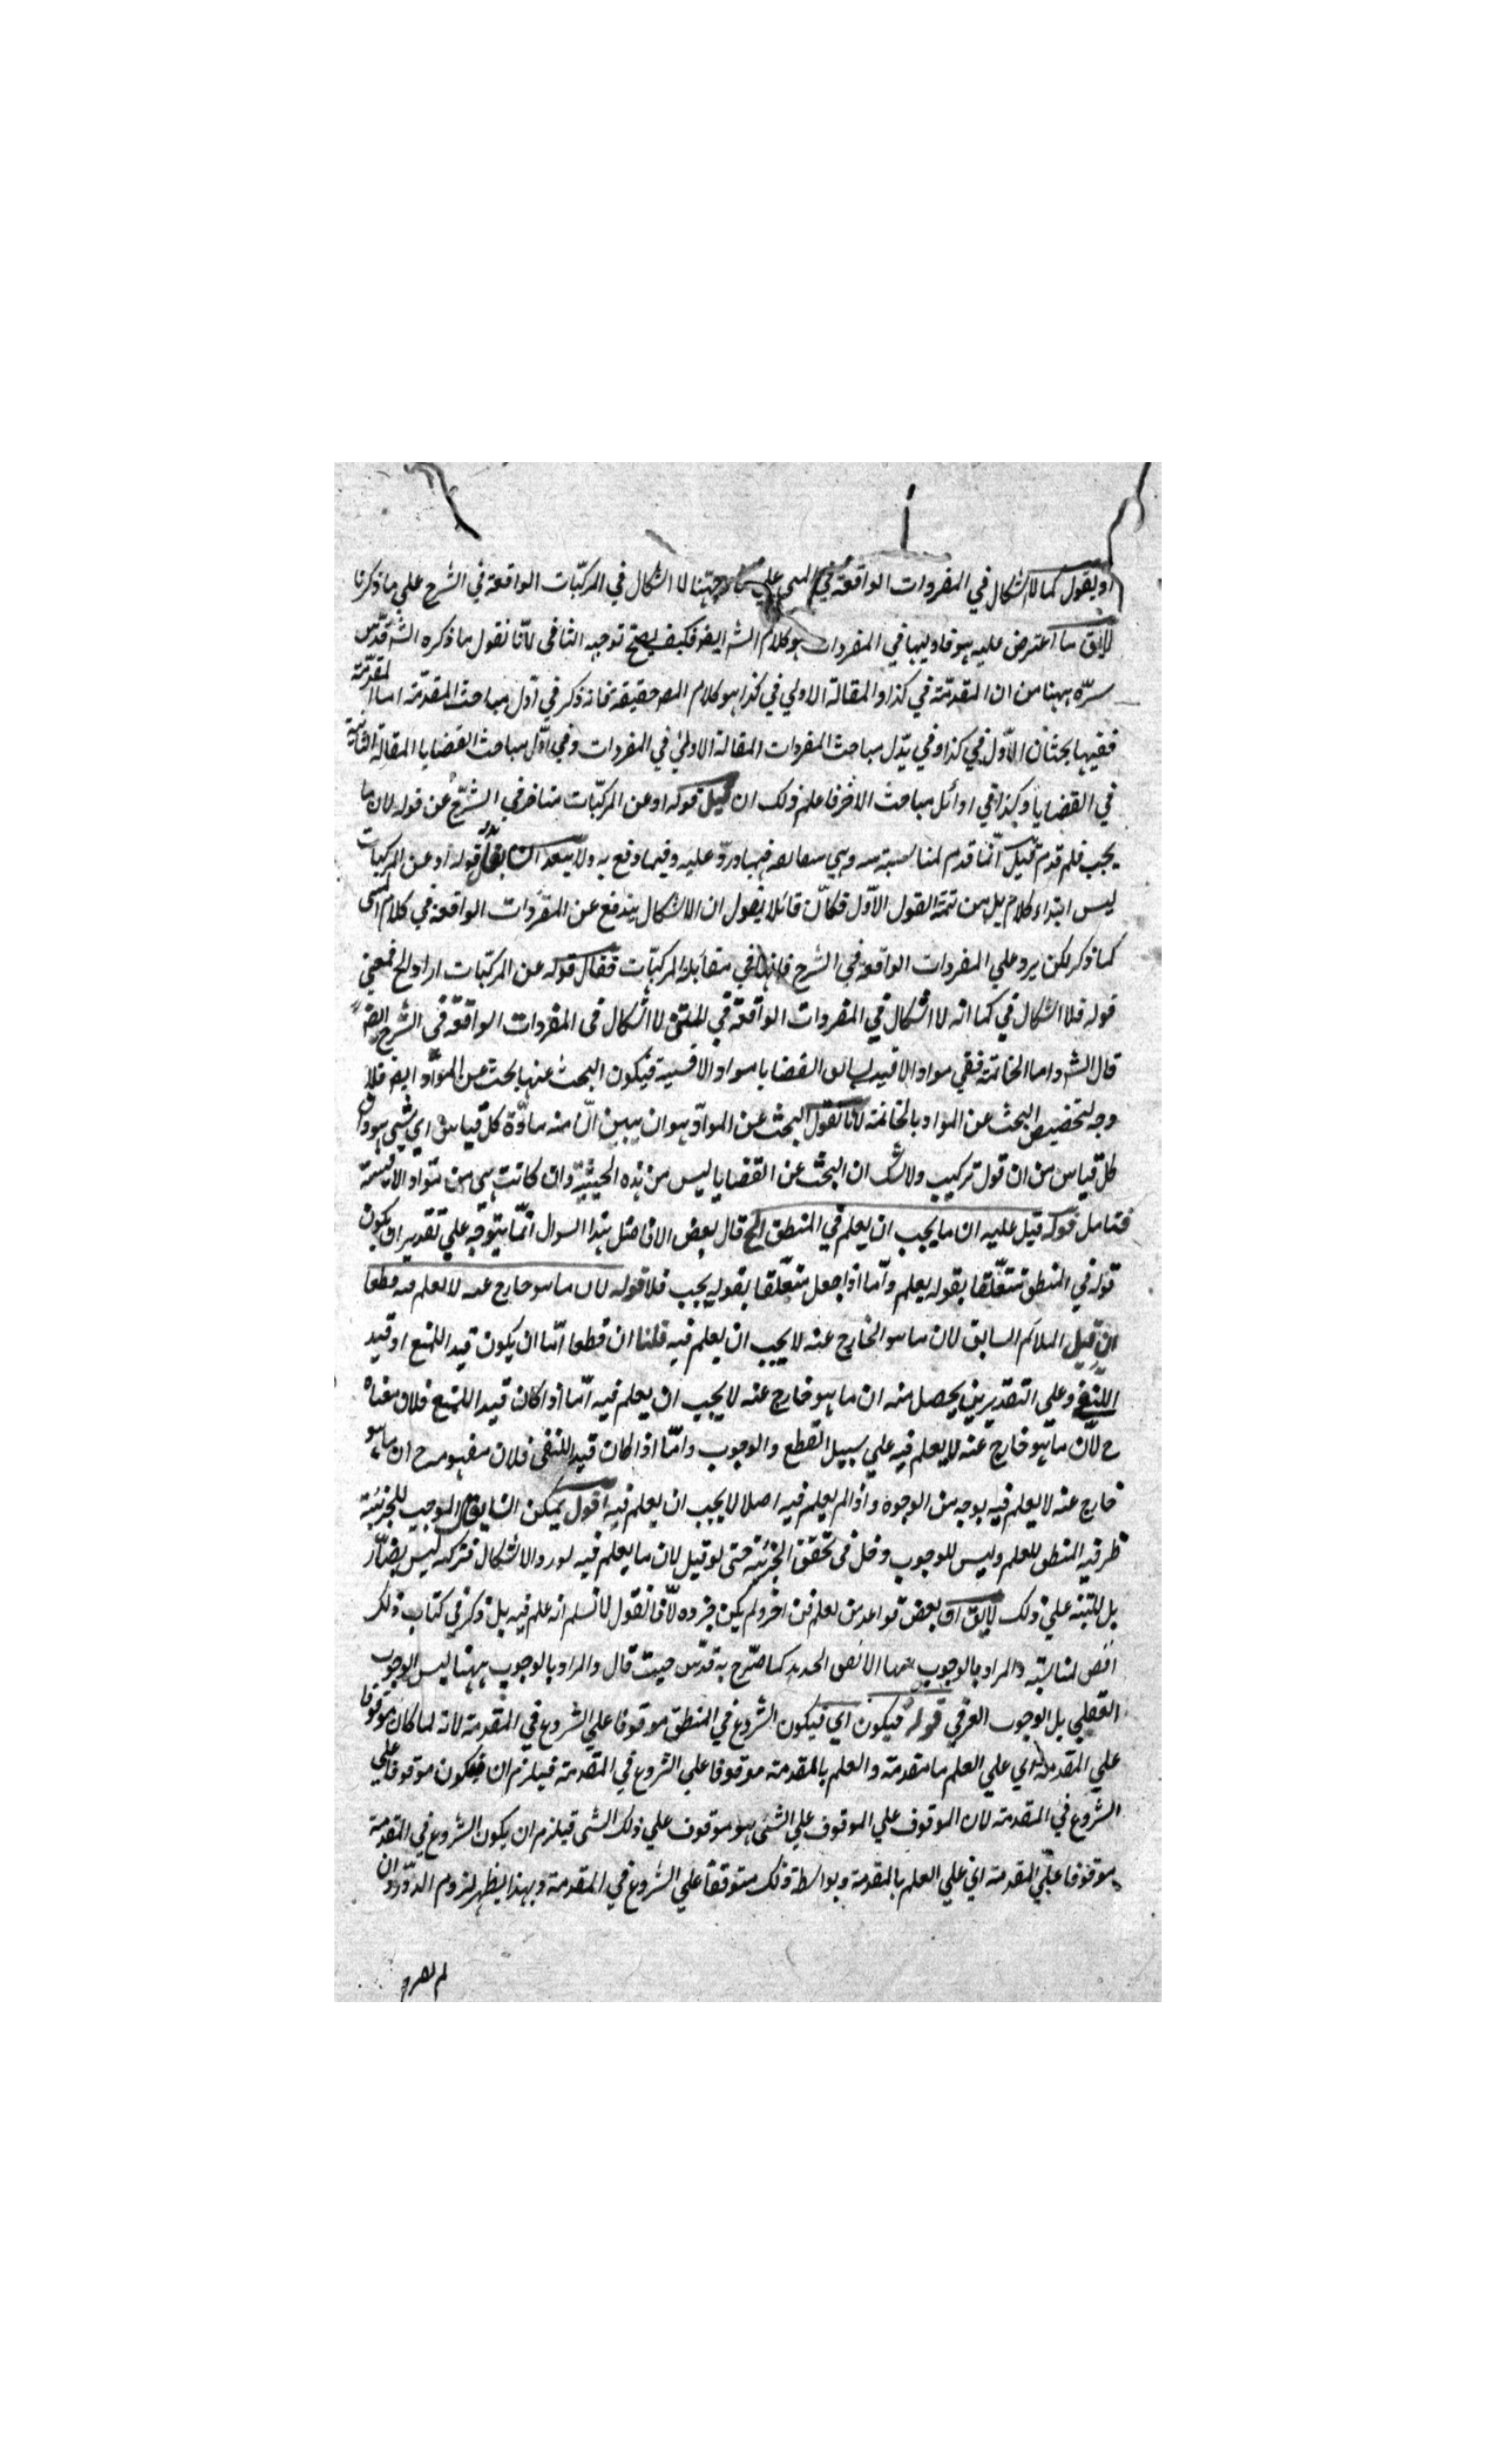 او يقول كما لا اشكال في المفردات الواقعة في المتن على توجيهنا لا اشكال في المركبات الواقعة في الشرح علي ما ذكرنا
لا يق ما اعترض عليه هو فاوليها في المفردات هو كلام الش ايضو فكيف يصح توجيه الثاني لانا نقول ما ذكره الش قدس
سره ههنا من ان المقدمة في كذا والمقالة الاولي في كذا هو كلام المص حقيقة فانه ذكر في اول مباحث المقدمة اما المقدمة
ففيها بحثان الاول في كذا وفي مباحث المفردات المقالة الاولي في المفردات وفي اول مباحث القضايا المقالة الثانية
في القضايا وكذا في اوائل مباحث الاخر فاعلم ذلك ان قيل قوله او عن المركبات متاخر في الشرح عن قوله لان ما
يجب فلم قدم قيل انما قدم لمناسبة وهي فيما ورد عليه وفيما دفع به ولا يبعد ان يقال قوله او عن المركبات
ليس ابتداء كلام بل من تتمة القول الاول فكان قائلا يقول ان الاشكال يندفع عن المفردات الواقعة في كلام المص
كما ذكر لكن يرد علي المفردات الواقعة في الشرح فانها في مقابلة المركبات فقال قوله عن المركبات اراد الخ فمعني
قوله فلا اشكال في كما انه لا اشكال في المفردات الواقعة في المتن لا اشكال في المفردات الواقعة في الشرح ايضو
قال الش واما الخاتمة ففي مواد الاقيسة القضايا مواد الاقيسة فيكون البحث عنها بحث عن المواد ايضو فلا
وجه لتخصيص البحث عن المواد بالخاتمة لانا نقول البحث عن المواد هو ان يبين ان منه مادة كل قياس اي شي هو وان
كل قياس من ان قول تركيب ولا شك ان البحث عن القضايا ليس من هذه الحيثية وان كانت هي من مواد الاقيسة
فتامل قوله قيل عليه ان ما يجب ان يعلم في المنطق الخ قال بعض الافاضل هذا السوال انما يتوجه علي تقدير ان يكون
قوله في المنطق متعلقا بقوله يعلم واما اذا جعل متعلقا بقوله يجب فلا قوله لان ما هو خارج عنه لا يعلم فيه قطعا
ان قيل الملائم السابق لان ما هو الخارج عنه لا يجب ان يعلم فيه قلنا ان قطعا اما ان يكون قيد اللمنع او قيد
اللنفي وعلي التقديرين يحصل منه ان ما هو خارج عنه لا يجب ان يعلم فيه اما اذا كان قيد اللمنع فلان معناه
ح لان ما هو خارج عنه لا يعلم فيه علي سبيل القطع والوجوب واما اذا كان قيد اللنفي فلان مفهومه ح ان ما هو
خارج عنه لا يعلم فيه بوجه من الوجوه واذا لم يعلم فيه اصلا لا يجب ان يعلم فيه اقول يمكن ان يق الموجب للجزئية
ظرفية المنطق للعلم وليس للوجوب دخل في تحقق الجزئية حتى لو قيل لان ما يعلم فيه لورد الاشكال فتركه ليس بضار
بل للتنبه علي ذلك لا يق ان بعض قواعد من يعلم فن اخر ولم يكن جزءه لانا نقول لا نسلم انه علم فيه بل ذكر في كتاب ذلك
الفن لمناسبة والمراد بالوجوب كما صرح به قدس حيث قال والمراد بالوجوب ههنا ليس الوجوب
العقلي بل الوجوب العرفي قوله فيكون اي فيكون الشروع في المنطق موقوفا علي الشروع في المقدمة لانه لما كان موقوفا
علي المقدمة اي علي العلم بالمقدمة والعلم بالمقدمة موقوفا علي الشروع في المقدمة فيلزم ان يكون موقوفا علي
الشروع في المقدمة لان الموقوف علي الموقوف علي الشي هو موقوف علي ذلك الشي فيلزم ان يكون الشروع في المقدمة
موقوفا علي المقدمة اي علي العلم بالمقدمة وبواسطة ذلك متوقفا علي الشروع في المقدمة وبهذا يظهر لزوم الدور وان